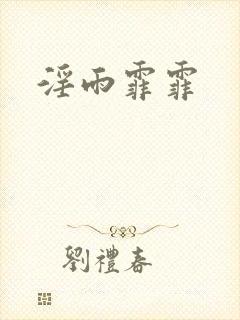 淫雨霏霏
劉禮春